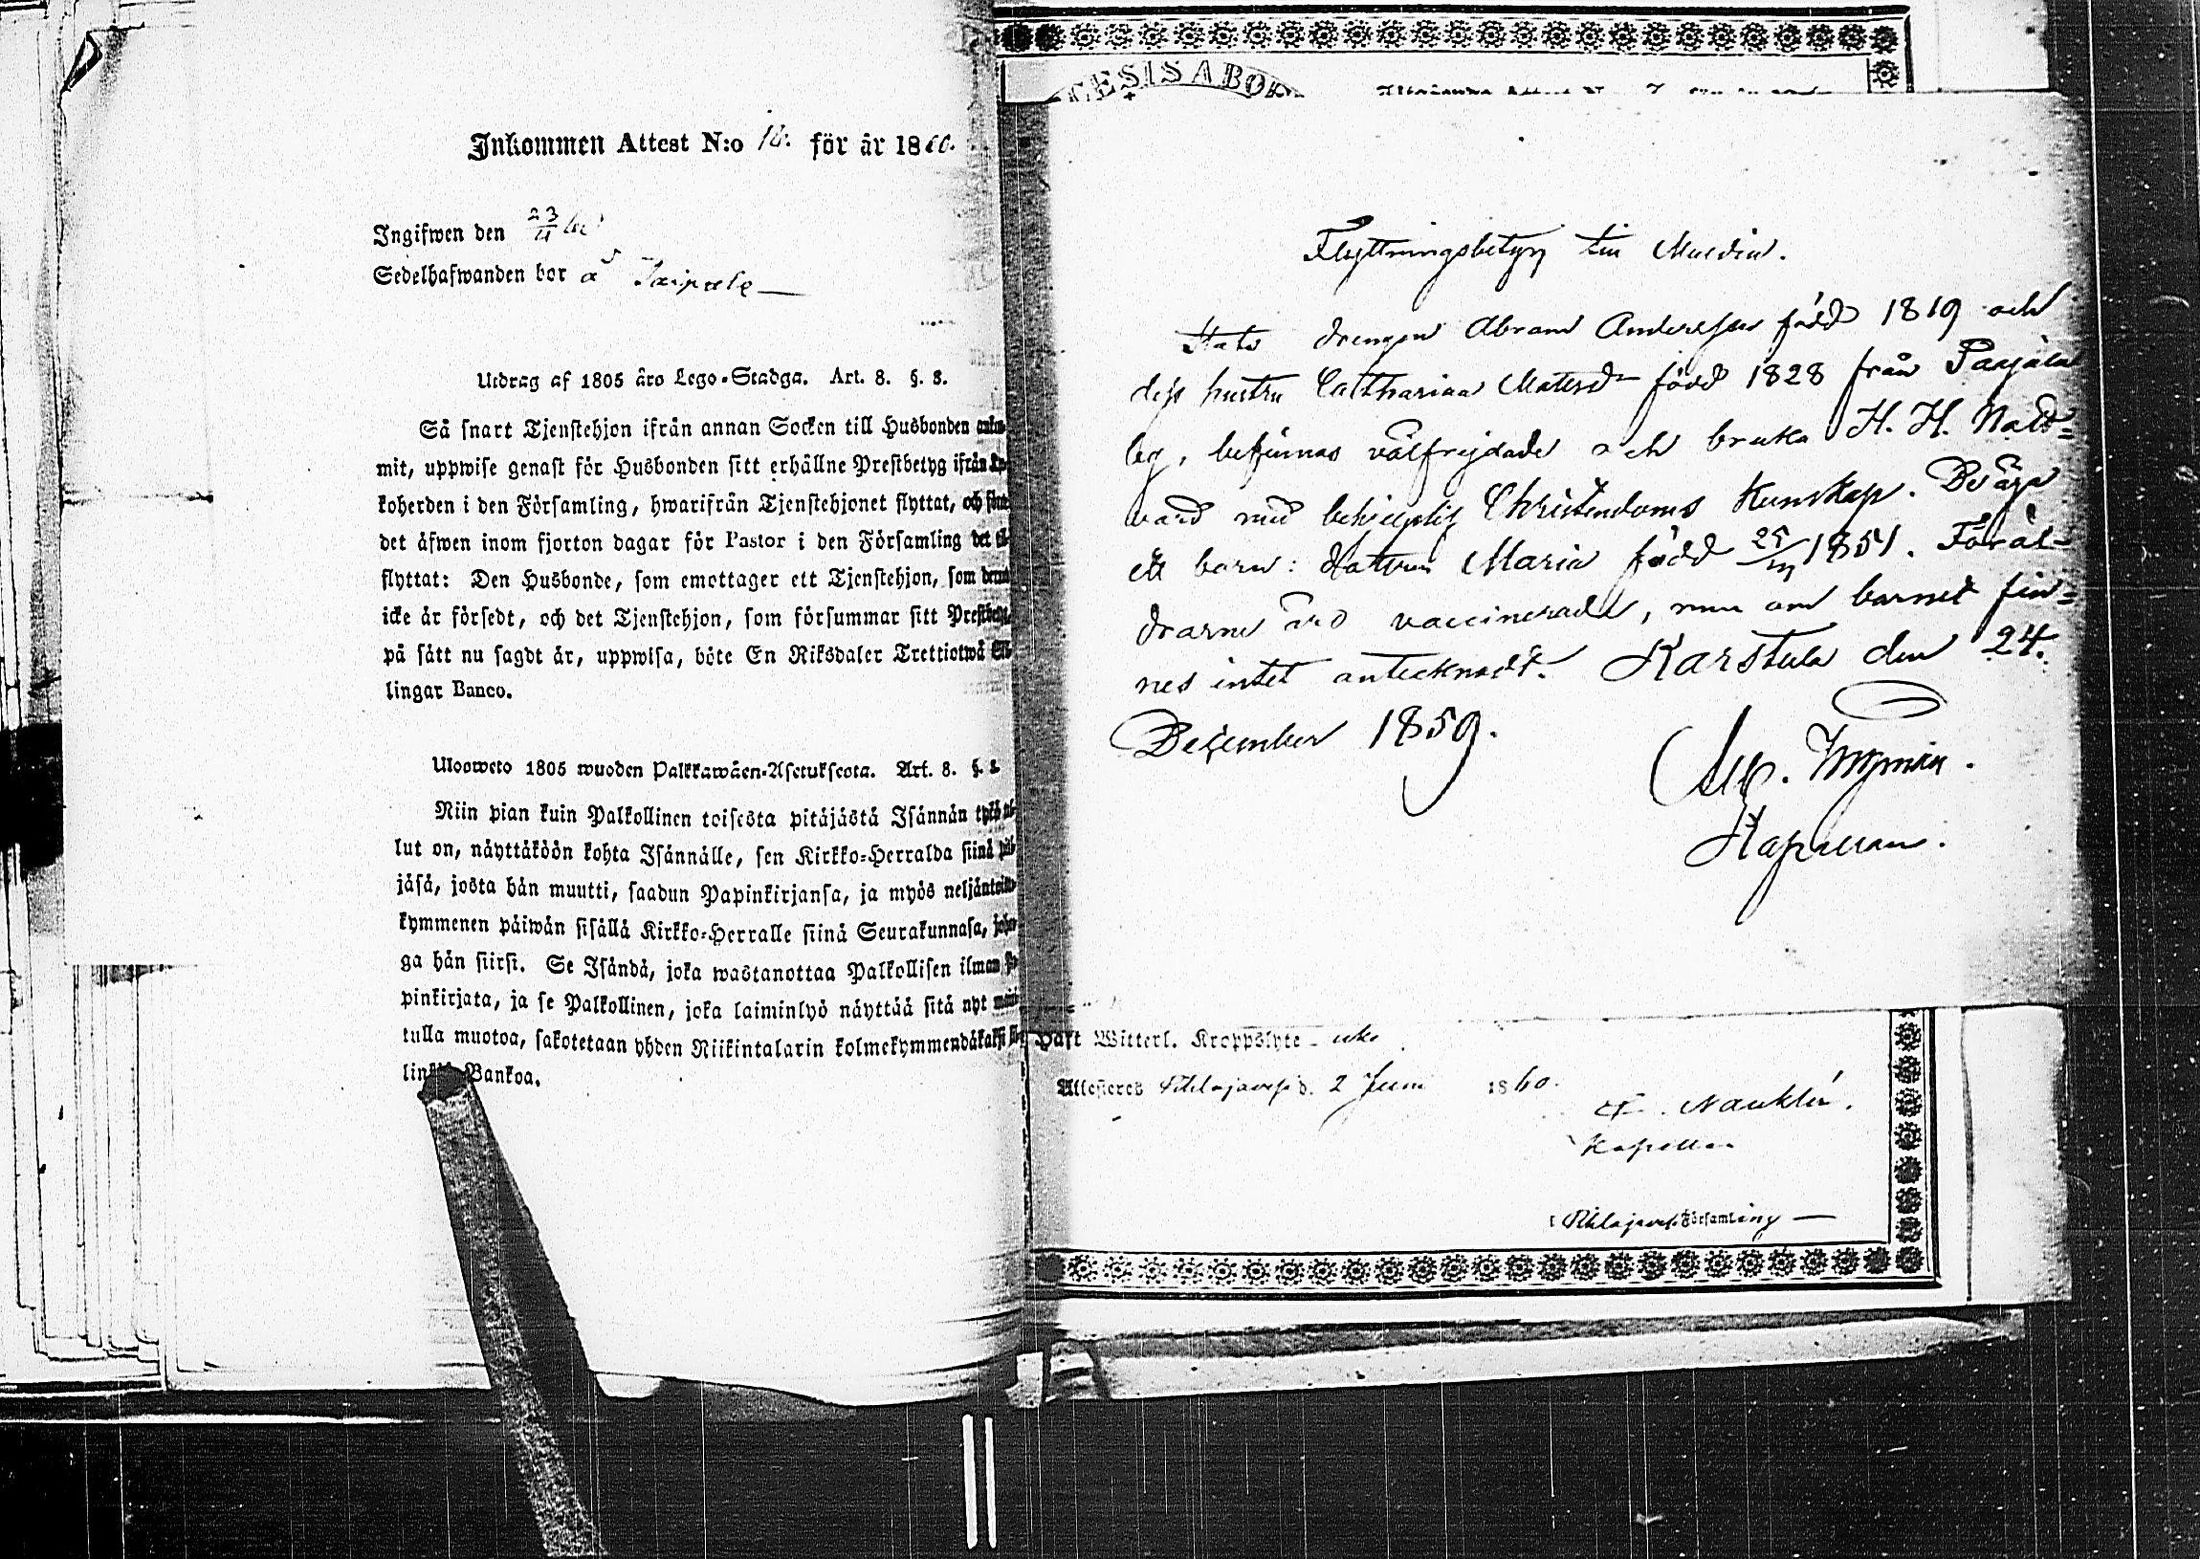 Inkommen Attest N:o för år 1860.
Ingifwen den 23/4 60
Sedelhafwanden bor å Taipale
Utdrag af 1805 års Lego-Stadga. Art. 8. §. 8.
Så snart Tjenstehjon ifrån annan Socken till Husbonden
mit, uppwise genast för Husbonden sitt erhållne Prestbetyg ifrån
koherden i den Församling, hwarifrån Tjenstehjonet flyttat, och
det äfwen inom fjorton dagar för Pastor i den Församling det
flyttat: Den Husbonde, som emottager ett Tjenstehjon, som
icke är försedt, och det Tjenstehjon, som försummar sitt
på sätt nu sagdt är, uppwisa, böte En Riksdaler Trettiotwå
lingar Banco.
Ulosweto 1805 wuoden Palkkawäen-Asetuksesta. Art. 8. §.
Niin pian kuin Palkollinen toisesta pitäjästä Isännän
lut on, näyttäköön kohta Isännälle, sen Kirkko-Herralda siinä
jäsä, josta hän muutti, saadun Papinkirjansa, ja myös
kymmenen päiwän sisällä Kirkko-Herralle siinä Seurakunnasa,
ga hän siirsi. Se Isändä, joka wastanottaa Palkollisen ilman
pinkirjata, ja se Palkollinen, joka laiminlyö näyttää sitä nyt
tulla muotoa, sakotetaan yhden Riikintalarin kolmekymmendäkaksi
Bankoa.
CESIS ABOE
Flyttningsbetyg till Muldia.
Stats drengen Abram Andersson född 1819 och
dess hustru Catharina Matsd:r född 1828 från
leg, befinnas välfrejdade och bruka H. H. Natt=
vard med behjelplig Christendoms Kunskap. De äga
ett barn: Maria född 25/ 1851. Föräl=
drarne äro vaccinerade, men om barnet fin=
nes intet antecknadt. Karstula den 24.
December 1859.
Kapellan.
Haft Witterl. Kroppslyte icke
Attesteres d. 2 Juni 1860.
Nauklér.
Kapellan
Församling